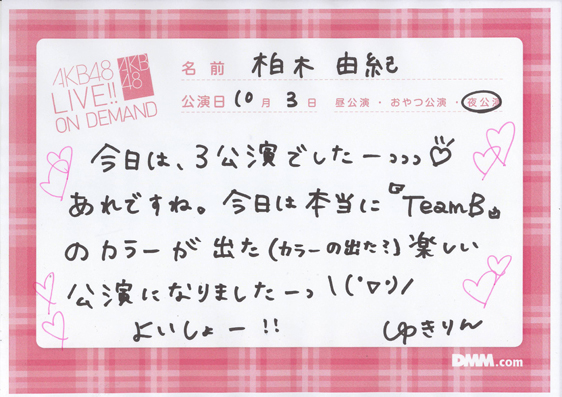 AKB48
LIVE!!
ON DEMAND
AKB
48
名前 柏木 由紀
公演日 10月 3日 昼公演・おやつ公演・夜公演
今日は、3公演でしたーっっっ♡
あれですね。今日は本当に『TeamB』
のカラーが出た(カラーの出た?)楽しい
公演になりましたーっ\(°▽°)/
よいしょー!! ゆきりん
DMM.com